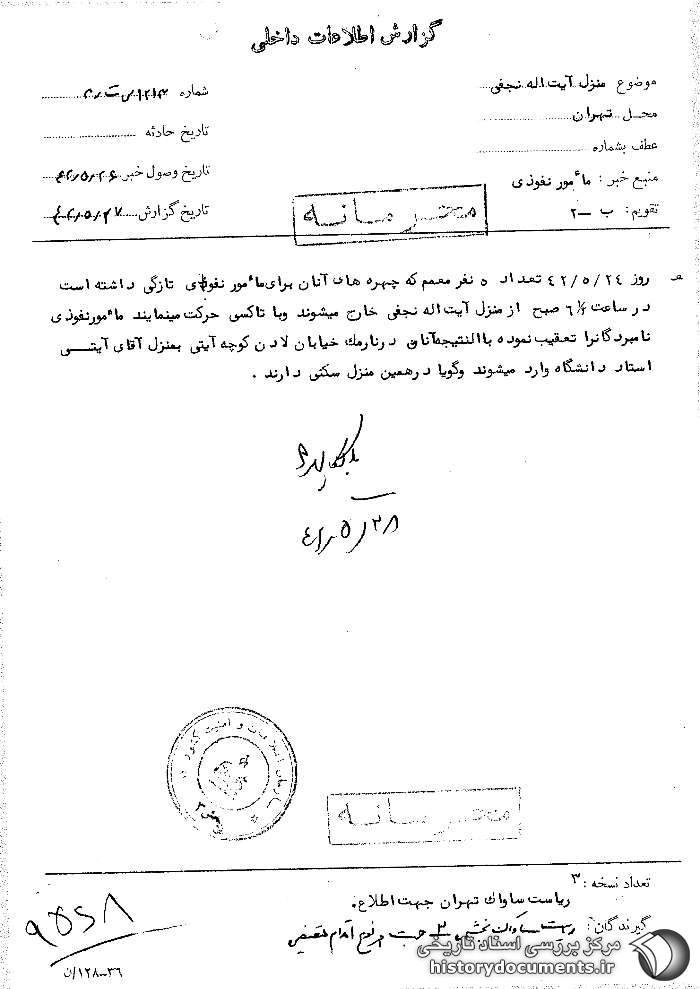 گزارش اطلاعات داخلی
موضوع منزل آیت اله نجفی
محل تهران
عطف بشماره
منبع خبر: مأمور نفوذی
تقویم: ب-۲
شماره
تاریخ حادثه
تاریخ وصول خبر ۴۲،۵،۲۶
تاریخ گزارش ۴۲،۵،۲۷
محرمانه
روز ۴۲/۵/۲۴ تعداد ۵ نفر معمم که چهره های آنان برای مأمور نفوذی تازگی داشته است
در ساعت ½۶ صبح از منزل آیت اله نجفی خارج میشوند وبا تاکسی حرکت مینمایند مأمورنفوذی
نامبردگانرا تعقیب نموده باالنتیجه آنان در نارمک خیابان لادن کوچه آیتی بمنزل آقای آیتـــی
استاد دانشگاه وارد میشوند وگویا در همین منزل سکنی دارند.
۴۲،۵،۲۸
سازمان اطلاعات و امنیت کشور
محرمانه
تعداد نسخه: ۳
ریاست ساواک تهران جهت اطلاع.
گیرندگان: ریاست ساواک بخش ۳ جهت هر نوع اقدام مقتضی
۱۲۸-۳۶/ن
مرکز بررسی اسناد تاریخی
historydocuments.ir